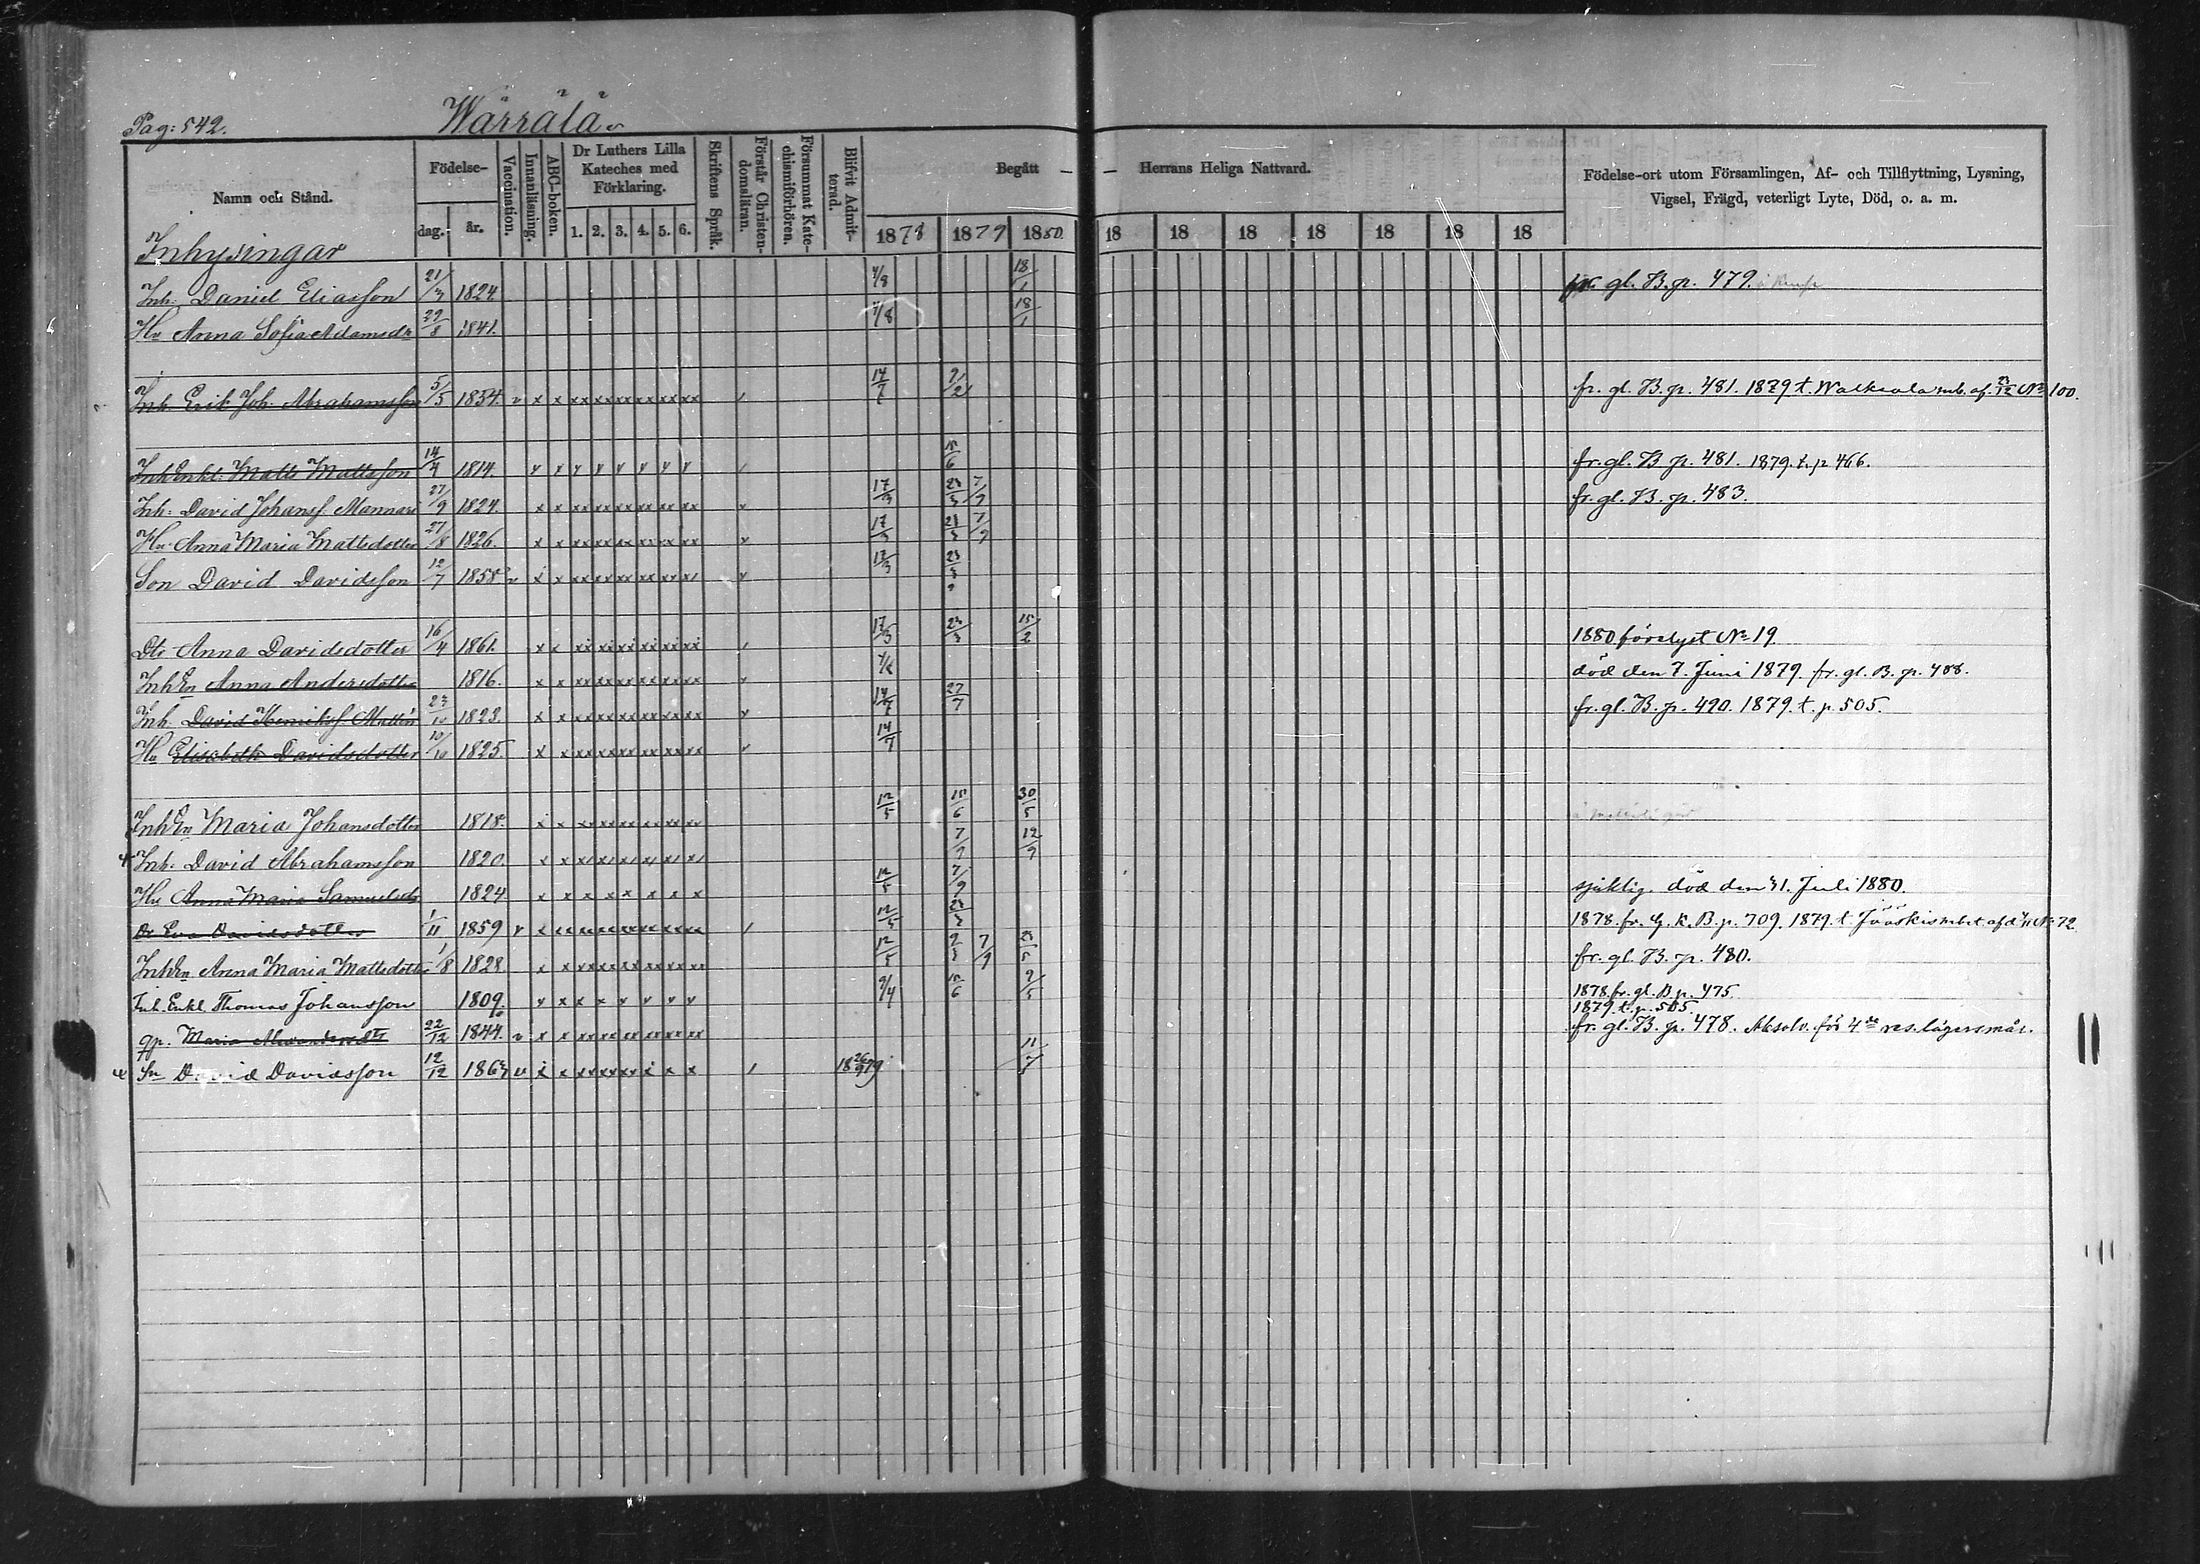 Pag: 542. Wärrälä
Namn och Stånd. Födelse- dag. år. Vaccination. Innanläsning. ABC-boken. Dr Luthers Lilla Kateches med Förklaring. 1. 2. 3. 4. 5. 6. Skriftens Språk. Förstår Christendomsläran. Försummat Katechismiförhören. Blifvit Admitterad. Begått Herrans Heliga Nattvard. 1878 1879 1880 18 18 18 18 18 18 18 Födelse-ort utom Församlingen, Af- och Tillflyttning, Lysning, Vigsel, Frägd, veterligt Lyte, Död, o. a. m.
Inhysingar
Inh. Daniel Eliasson 21/3 1824 4/8 18/1 fr. gl. B. p. 479.
Hu Anna Sofia Adamsdr 29/8 1841. 4/8 18/1
Inh. Erik Joh. Abrahamsson 5/5 1834. 14/7 9/2 fr. gl. B. p. 481. 1879 t. Walkeala af. No 100.
Inh Enkl. Matts Mattsson 14/7 1814. 15/6 fr. gl. B. p. 481. 1879. t. p 466.
Inh: David Johansf. Mannari 27/9 1824. 17/3 23/3 7/9 fr. gl. B. p. 483.
Hu Anna Maria Mattsdotter 27/8 1826. 17/3 23/3 7/9
Son David Davidsson 12/7 1858 17/3 23/3
Dtr Anna Davidsdotter 16/4 1861. 17/3 23/3 15/2 1880 förelyst No 19
Inh En Anna Andersdotter 1816. död den 7. Juni 1879. fr. gl. B. p. 488.
Inh. David Henriksf Mattin 23/10 1823. 14/7 27/7 fr. gl. B. p. 490. 1879. t. p. 505.
Hu Elisabeth Davidsdotter 10/10 1825. 14/7
Inh En Maria Johansdotter 1818. 12/5 15/6 30/5
Inh. David Abrahamsson 1820 7/9 12/9
Hu Anna Maria Samuelsdr 1824. 12/5 7/9 sjuklig. död den 31. Juli 1880.
Dr Eva Davidsdotter 1/11 1859 12/5 23/3 1878. fr. G. K. B. p. 709. 1879. t Jääskis No 72.
Inh En Anna Maria Mattsdotter 1/8 1828. 12/5 9/3 7/9 23/5 fr. gl. B. p. 480.
Inh. Enkl. Thomas Johansson 1809. 9/4 15/6 9/5 1878. fr. gl. B. p. 475.
1879. t. p. 505.
qp. Maria Alexandersdtr 22/12 1844. fr. gl. B. p. 478. Absolv. för 4de res. lägersmål.
Sn David Davidsson 12/12 1863 18 26/9 79 11/7